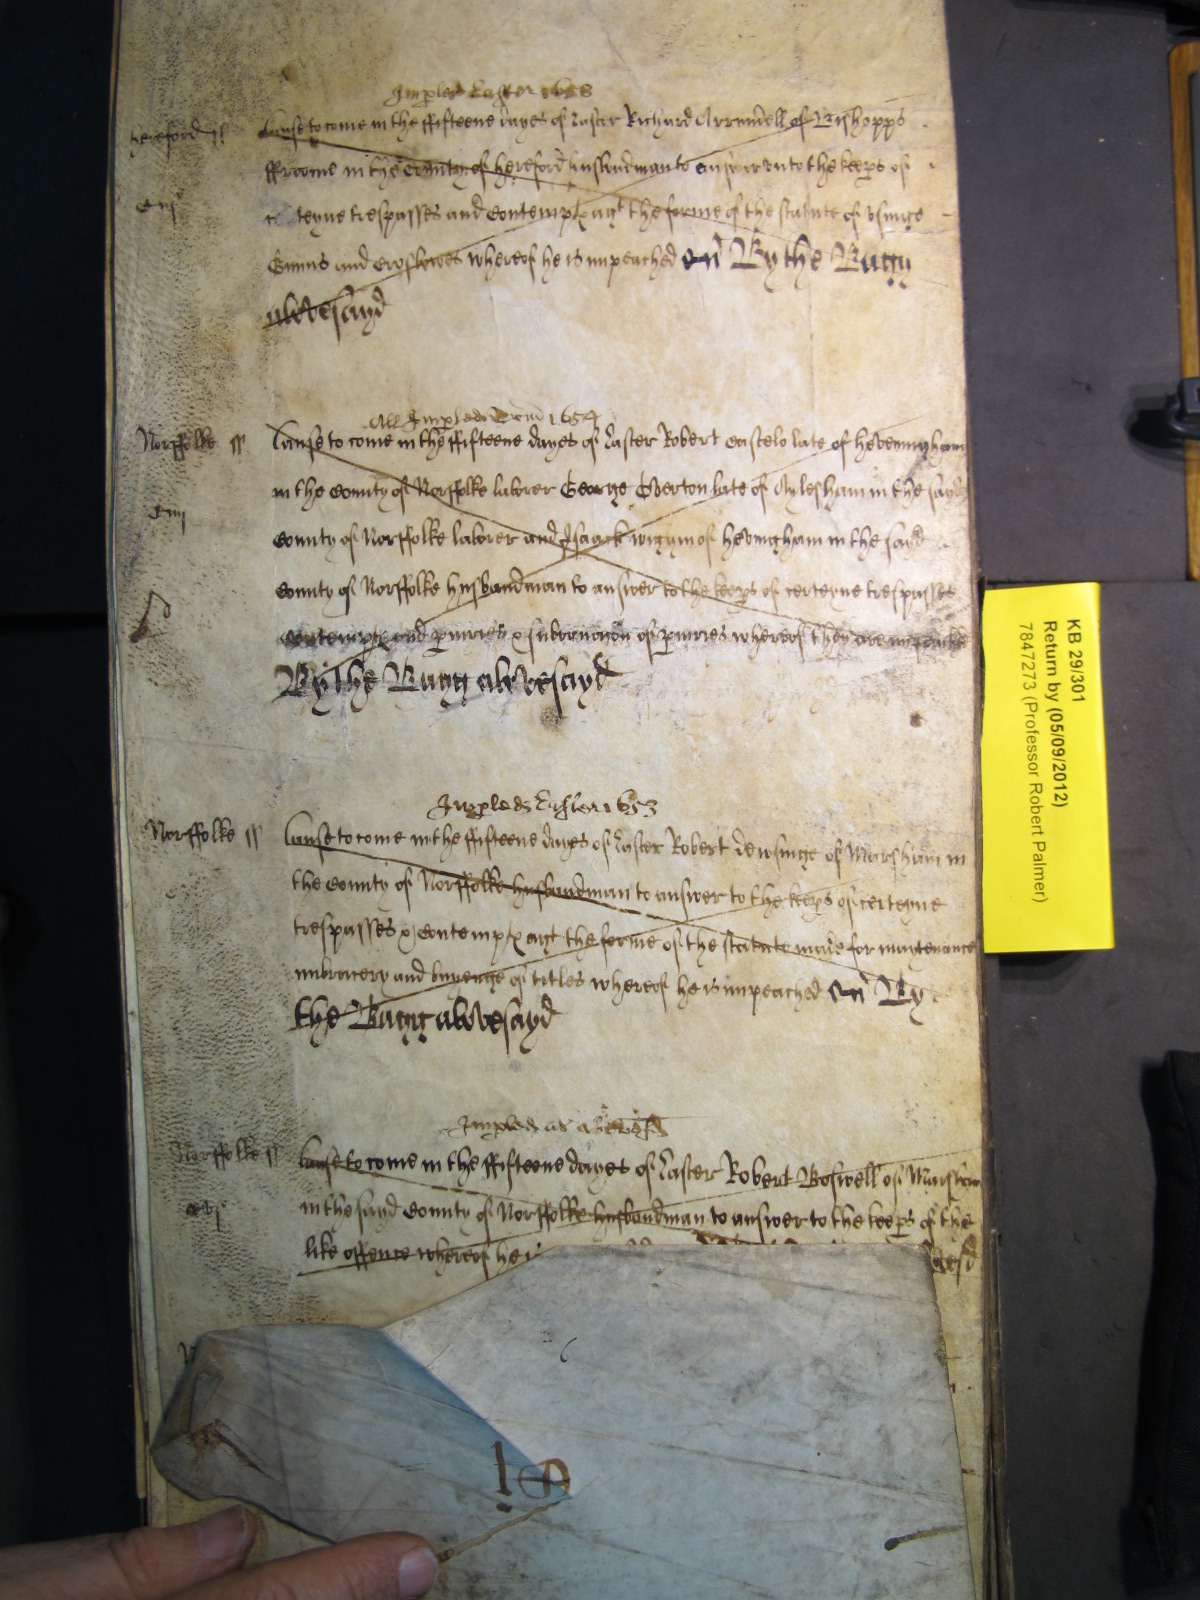 Impled Easter 1653
hereford ss Cause to come in the ffifteene dayes of Easter Richard Arrundell of Bishopps
ffroome in the County of hereford husbandman to answer unto the keeps of
teyne trespasses and Contempts agt the forme of the statute of usinge
Gunns and Crosbowes whereof he is impeached By the Bagg
abovesayd
All Impled 1654
Norffolke ss Cause to come in the ffifteene dayes of Easter Robert late of heveningham
in the County of Norffolke laborer George Overton late of Aylesham in the sayd
County of Norffolke laborer and Isaack of hevingham in the sayd
County of Norffolke husbandman to answer to the keeps of certeyne trespasses
contempts and and of whereof they are impeached
By the Bagg abovesayd
Impled Easter 1653
Norffolke ss Cause to come in the ffifteene dayes of Easter Robert dewsinge of Marsham in
the County of Norffolke husbandman to answer to the keeps of certeyne
trespasses & Contempts agt the forme of the statute made for mayntenance
imbracery and buyenge of titles whereof he is impeached By
the Bagg abovesayd
Impled as
Norffolke ss Cause to come in the ffifteene dayes of Easter Robert Boswell of Marsham
in the sayd County of Norffolke husbandman to answer to the keeps of the
like offence whereof he i
KB 29/301
Return by (05/09/2012)
7847273 (Professor Robert Palmer)